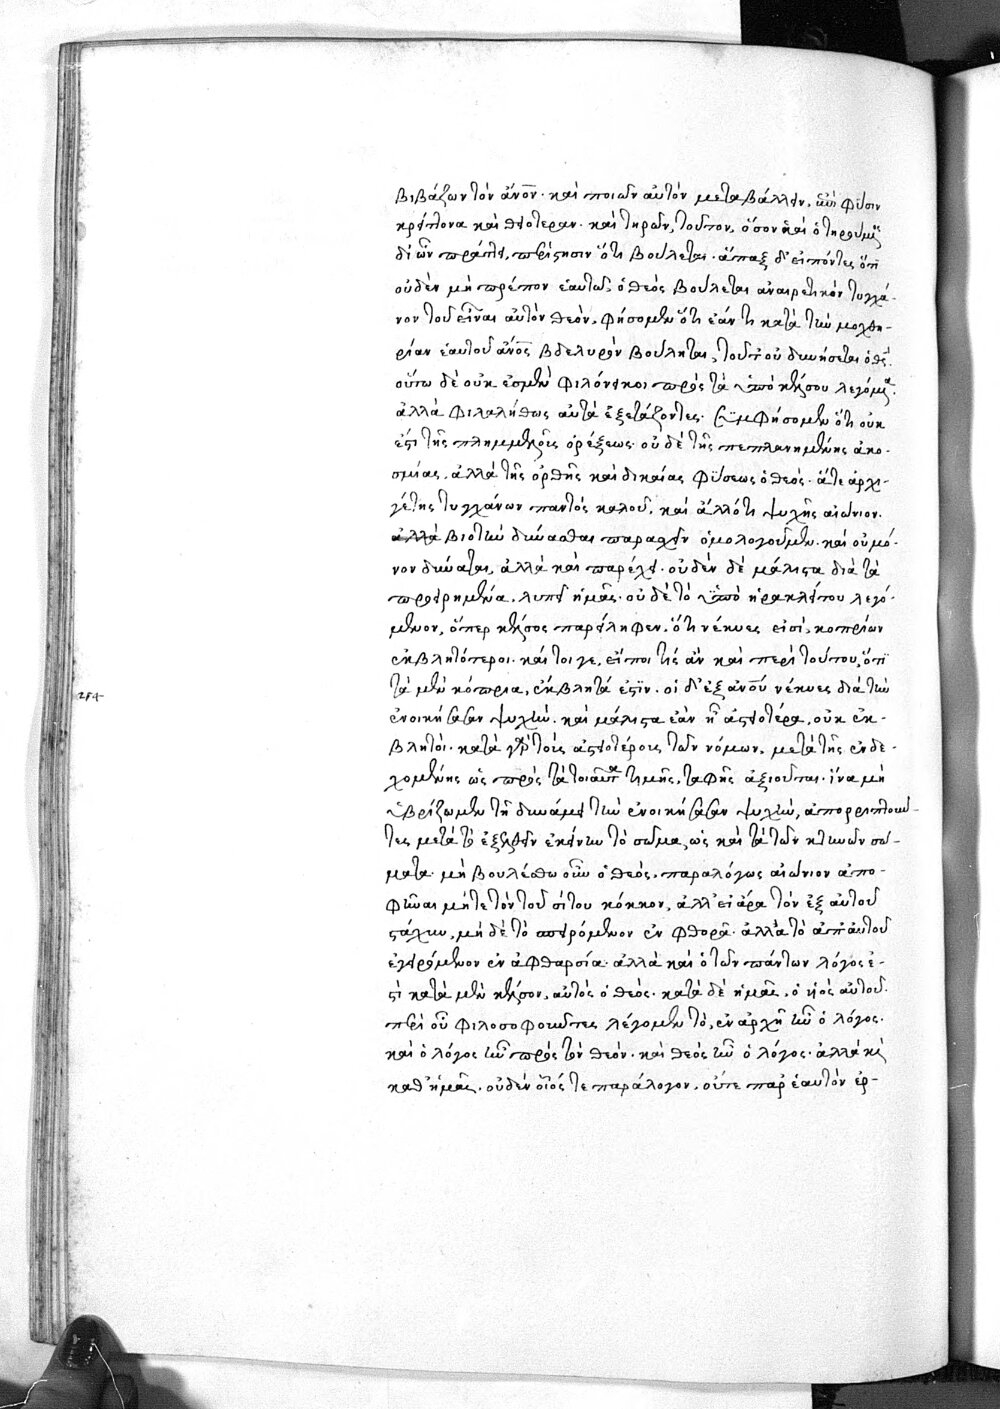 βιβάζων τὸν ἄνον· καὶ ποιῶν αὐτὸν μεταβάλλειν, ἐπὶ φύσιν
κρείττονα καὶ θειοτέραν· καὶ τηρῶν, τοῦτον, ὅσον καὶ ὁ τηρούμεν
δι' ὧν πράττει, παρίστησιν ὅτι βούλεται· ἅπαξ δ' εἰπόντες ὅτι
οὐδὲν μὴ πρέπον ἑαυτῶ, ὁ θεὸς βούλεται ἀναιρετικὸν τυγχά-
νον τοῦ εἶναι αὐτὸν θεὸν, φήσομεν ὅτι ἐάν τι κατὰ τὴν μοχθη-
ρίαν ἑαυτοῦ ἄνος βδελυρὸν βούληται, τοῦτ' οὐ δυνήσεται ὁ θς
οὕτω δὲ οὐκ ἐσμὲν φιλόνεικοι πρὸς τὰ ὑπὸ κέλσου λεγόμενα·
ἀλλὰ φιλαλήθως αὐτὰ ἐξετάζοντες· συμφήσομεν ὅτι οὐκ
ἔστι τῆς πλημμελοῦς ὀρέξεως· οὐδὲ τῆς πεπλανημένης ἀκο-
σμίας, ἀλλὰ τῆς ὀρθῆς καὶ δικαίας φύσεως ὁ θεὸς· ἅτε ἀρχι-
γέτης τυγχάνων παντὸς καλοῦ, καὶ ἀλλ' ὅτι ψυχῆς αἰώνιον
ἀλλὰ βιοτὴν δύνασθαι παρασχεῖν ὁμολογοῦμεν· καὶ οὐ μό-
νον δύναται, ἀλλὰ καὶ παρέχει· οὐδὲν δὲ μάλιστα διὰ τὰ
προειρημένα, λυπεῖ ἡμᾶς· οὐδὲ τὸ ὑπὸ ἡρακλείτου λεγό-
μενον, ὅπερ κέλσος παρείληφεν, ὅτι νέκυες εἰσὶ, κοπρίων
ἐκβλητότεροι· καίτοι γε, εἴποι τις ἂν καὶ περὶ τούτου, ὅτι
τὰ μὲν κόπρια, ἐκβλητά ἐστιν· οἱ δ' ἐξ ἀνου νέκυες διὰ τὴν
ἐνοικήσασαν ψυχὴν· καὶ μάλιστα ἐὰν ἦ ἀστειοτέρα, οὐκ ἔκ-
βλητοι· κατὰ γὰρ τοὺς ἀστειοτέρους τῶν νόμων, μετὰ τῆς ἐνδε-
χομένης ὡς πρὸς τὰ τοιαῦτα τιμῆς, ταφῆς ἀξιοῦται· ἵνα μὴ
ὑβρίζωμεν τῆ δυνάμει τὴν ἐνοικήσασαν ψυχὴν, ἀπορριπτοῦν-
τες μετὰ τὸ ἐξελθεῖν ἐκείνην τὸ σῶμα, ὡς καὶ τὰ τῶν κτηνῶν σώ-
ματα· μὴ βουλέσθω οὖν ὁ θεὸς, παραλόγως αἰώνιον ἀπο-
φῆναι μήτε τὸν τοῦ σίτου κόκκον, ἀλλ' εἰ ἄρα τὸν ἐξ αὐτοῦ
στάχυν, μηδὲ τὸ σπειρόμενον ἐν φθορᾶ· ἀλλὰ τὸ ἀπ' αὐτοῦ
ἐγειρόμενον ἐν ἀφθαρσία· ἀλλὰ καὶ ὁ τῶν πάντων λόγος ἐ-
στὶ κατὰ μὲν κέλσον, αὐτὸς ὁ θεὸς· κατὰ δὲ ἡμᾶς, ὁ υἱὸς αὐτοῦ·
περὶ οὗ φιλοσοφοῦντες λέγομεν τὸ, ἐν ἀρχῆ ἦν ὁ λόγος·
καὶ ὁ λόγος ἦν πρὸς τὸν θεὸν· καὶ θεὸς ἦν ὁ λόγος· ἀλλὰ καὶ
καθ' ἡμᾶς· οὐδὲν οἷός τε παράλογον, οὔτε παρ' ἑαυτὸν ἐρ-